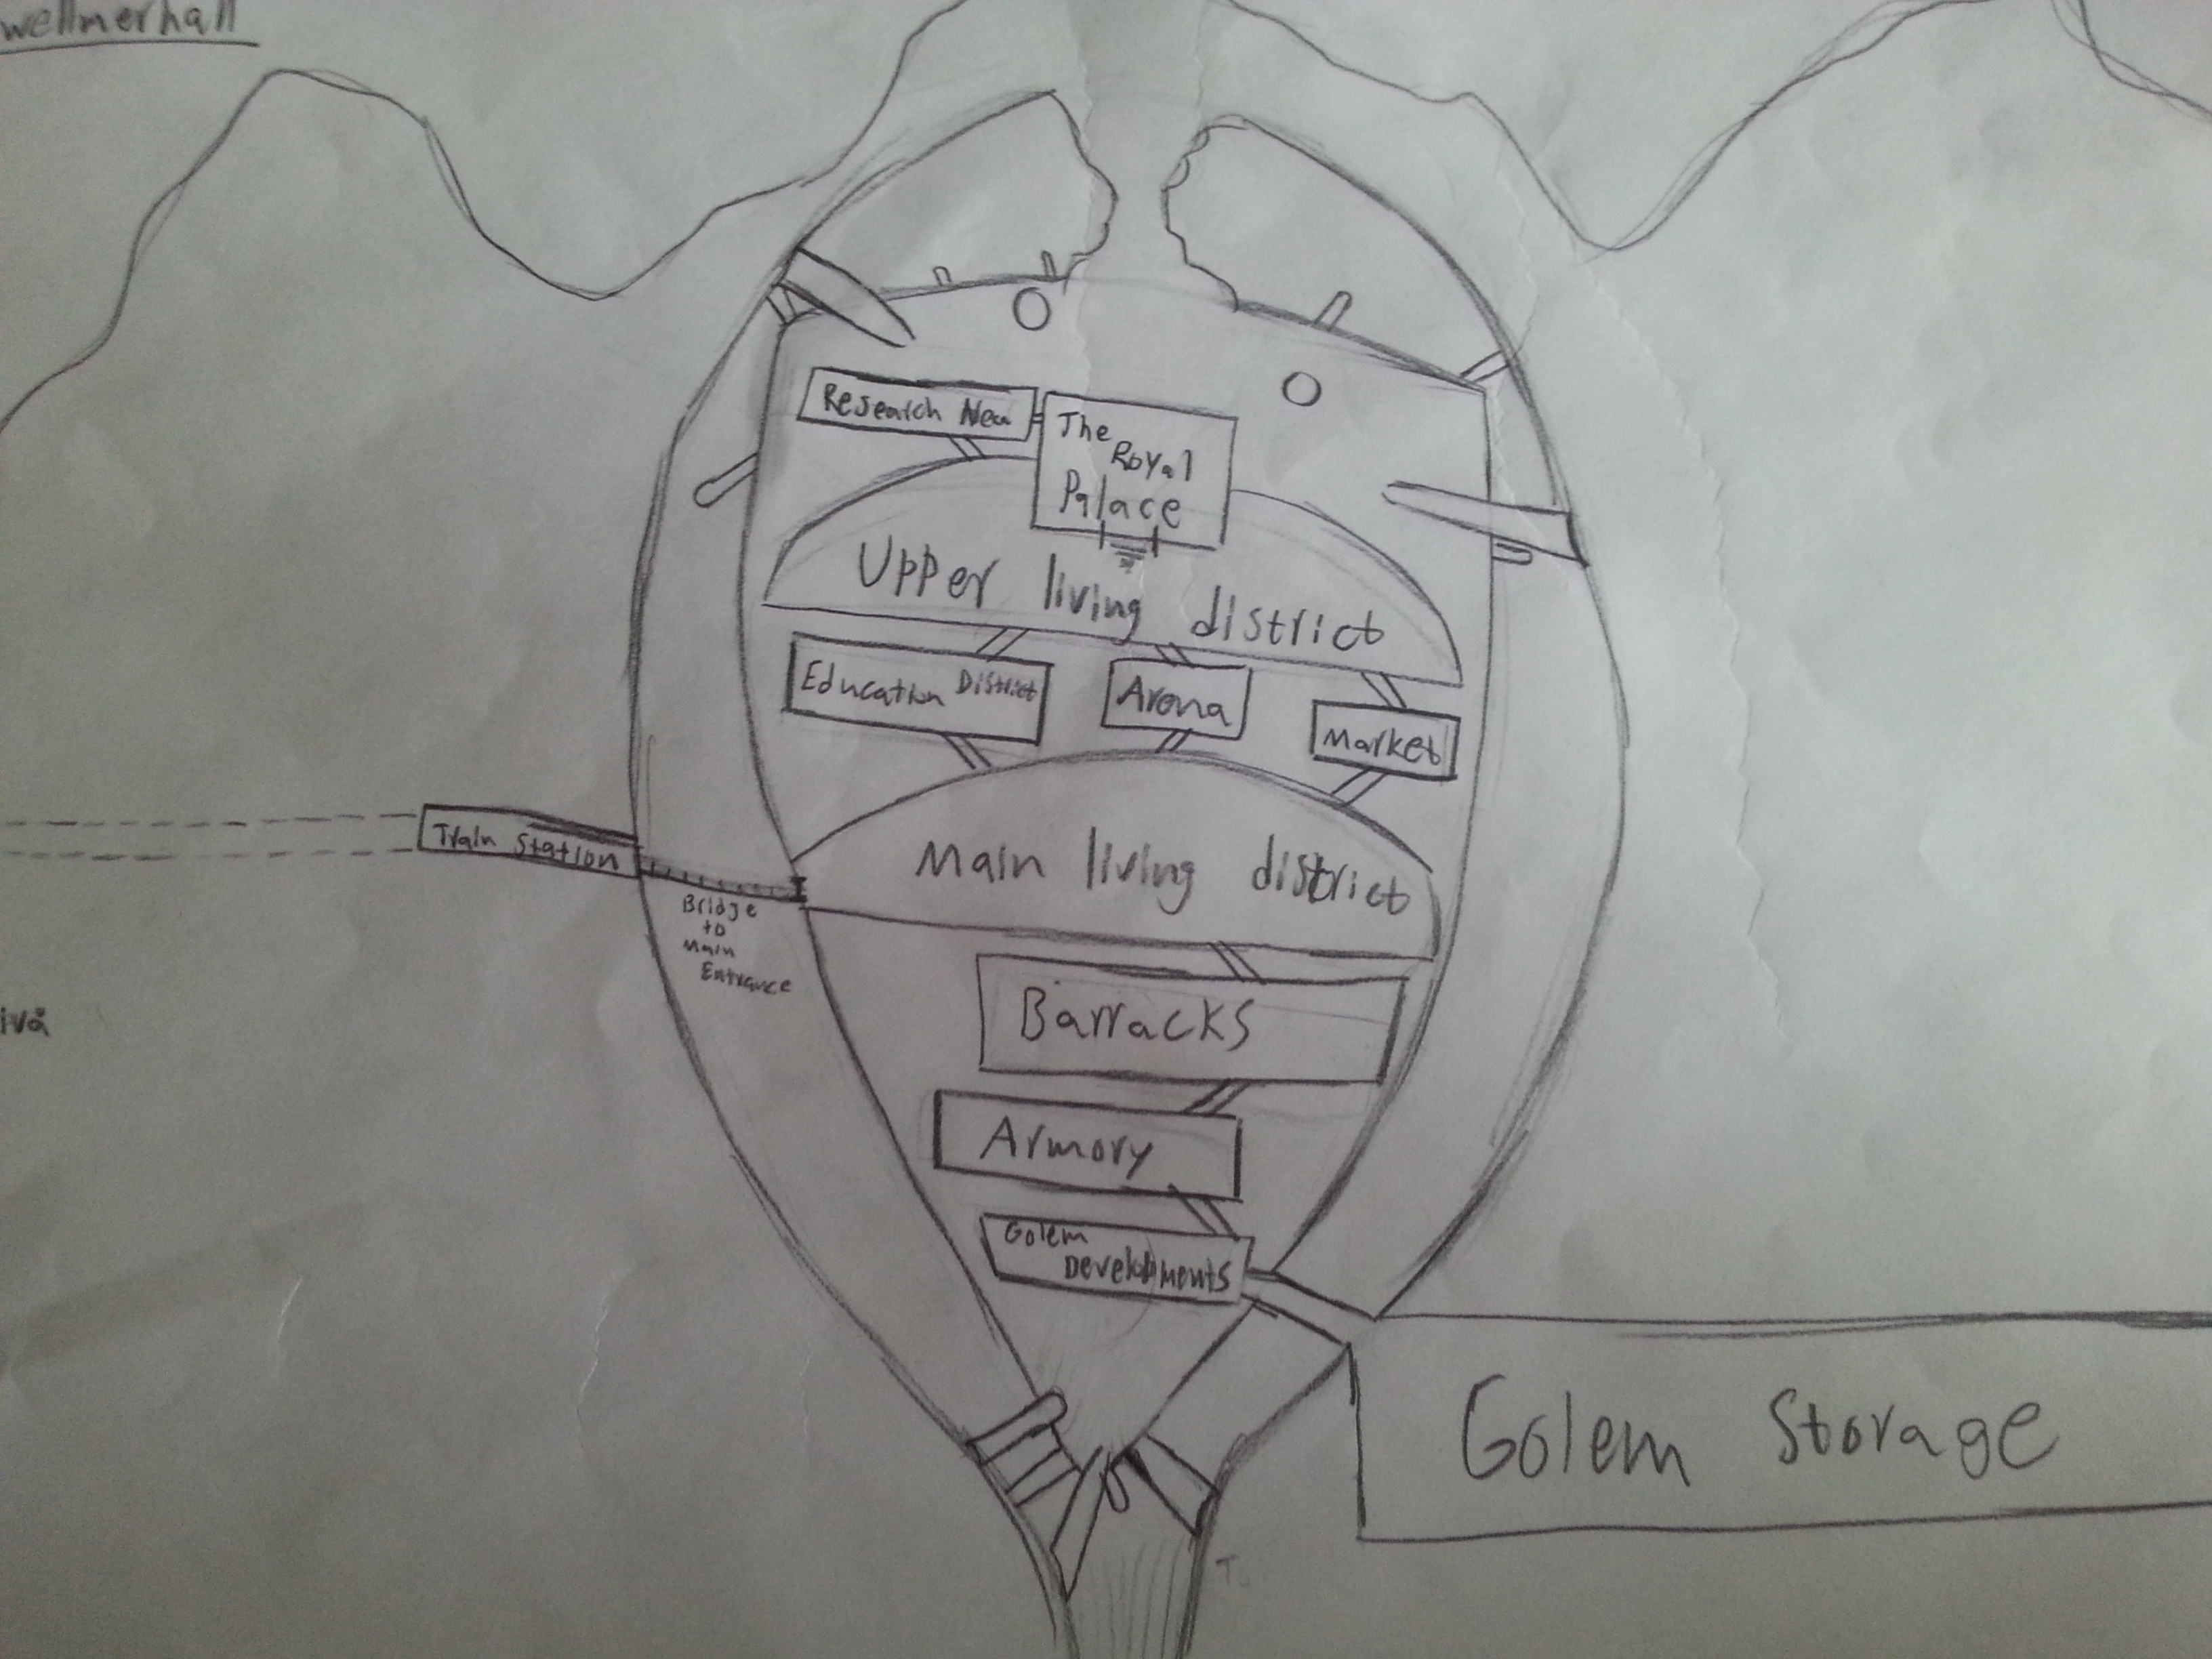 wellmerhall
Research Area
The
Royal
Palace
Upper living district
Education District
Arena
Market
Train Station
Main living district
Bridge
to
Main
Entrance
ivå
Barracks
Armory
Golem
Developments
Golem Storage